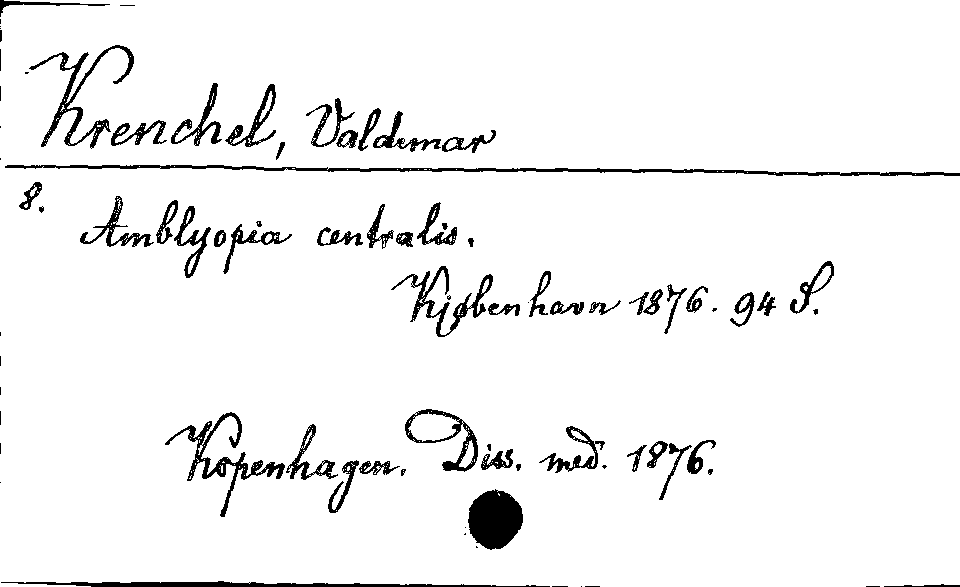 Krenchel, Valdemar
8.
Amblyopia centralis.
Kjøbenhavn 1876. 94 S.
Kopenhagen. Diss. med. 1876.